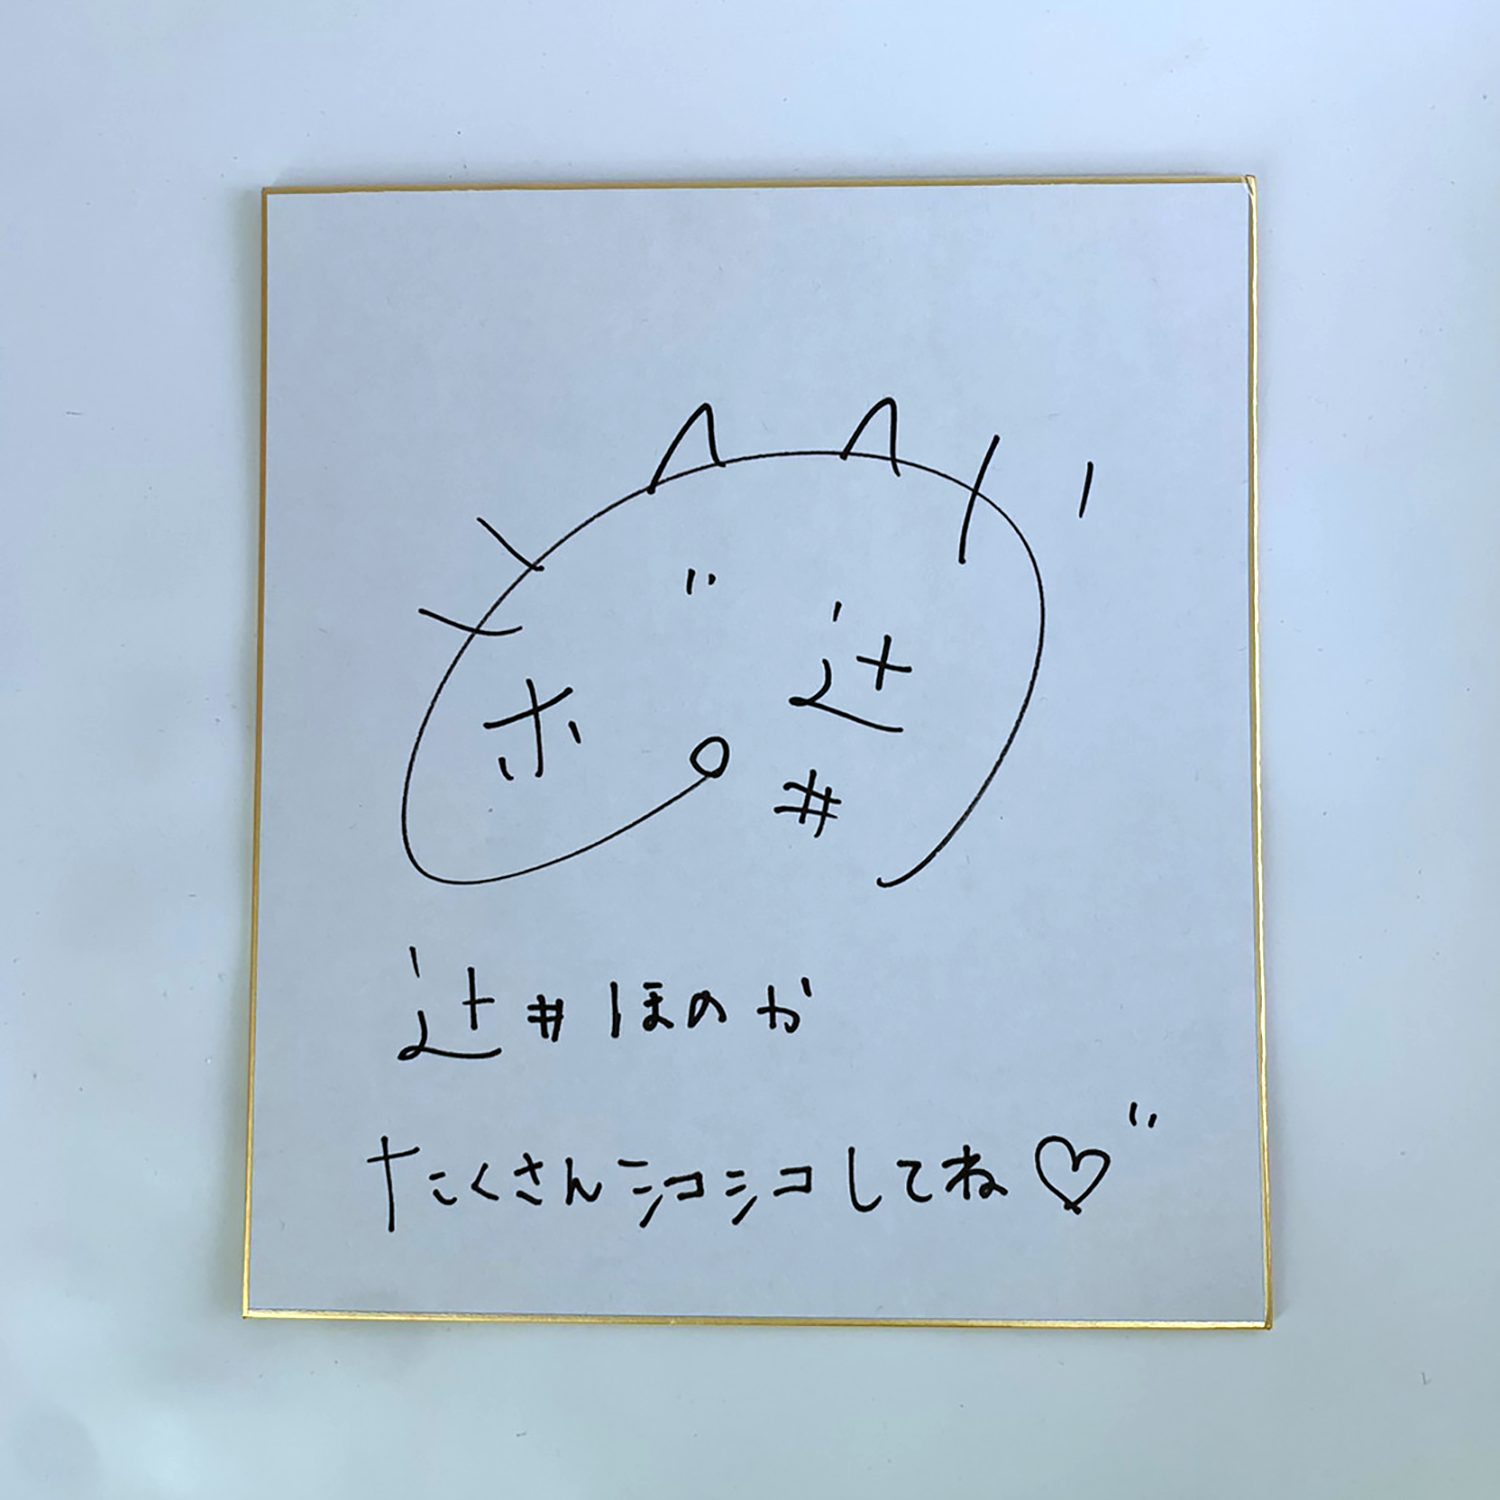 辻井
ホ
辻井ほのか
たくさんシコシコしてね♡